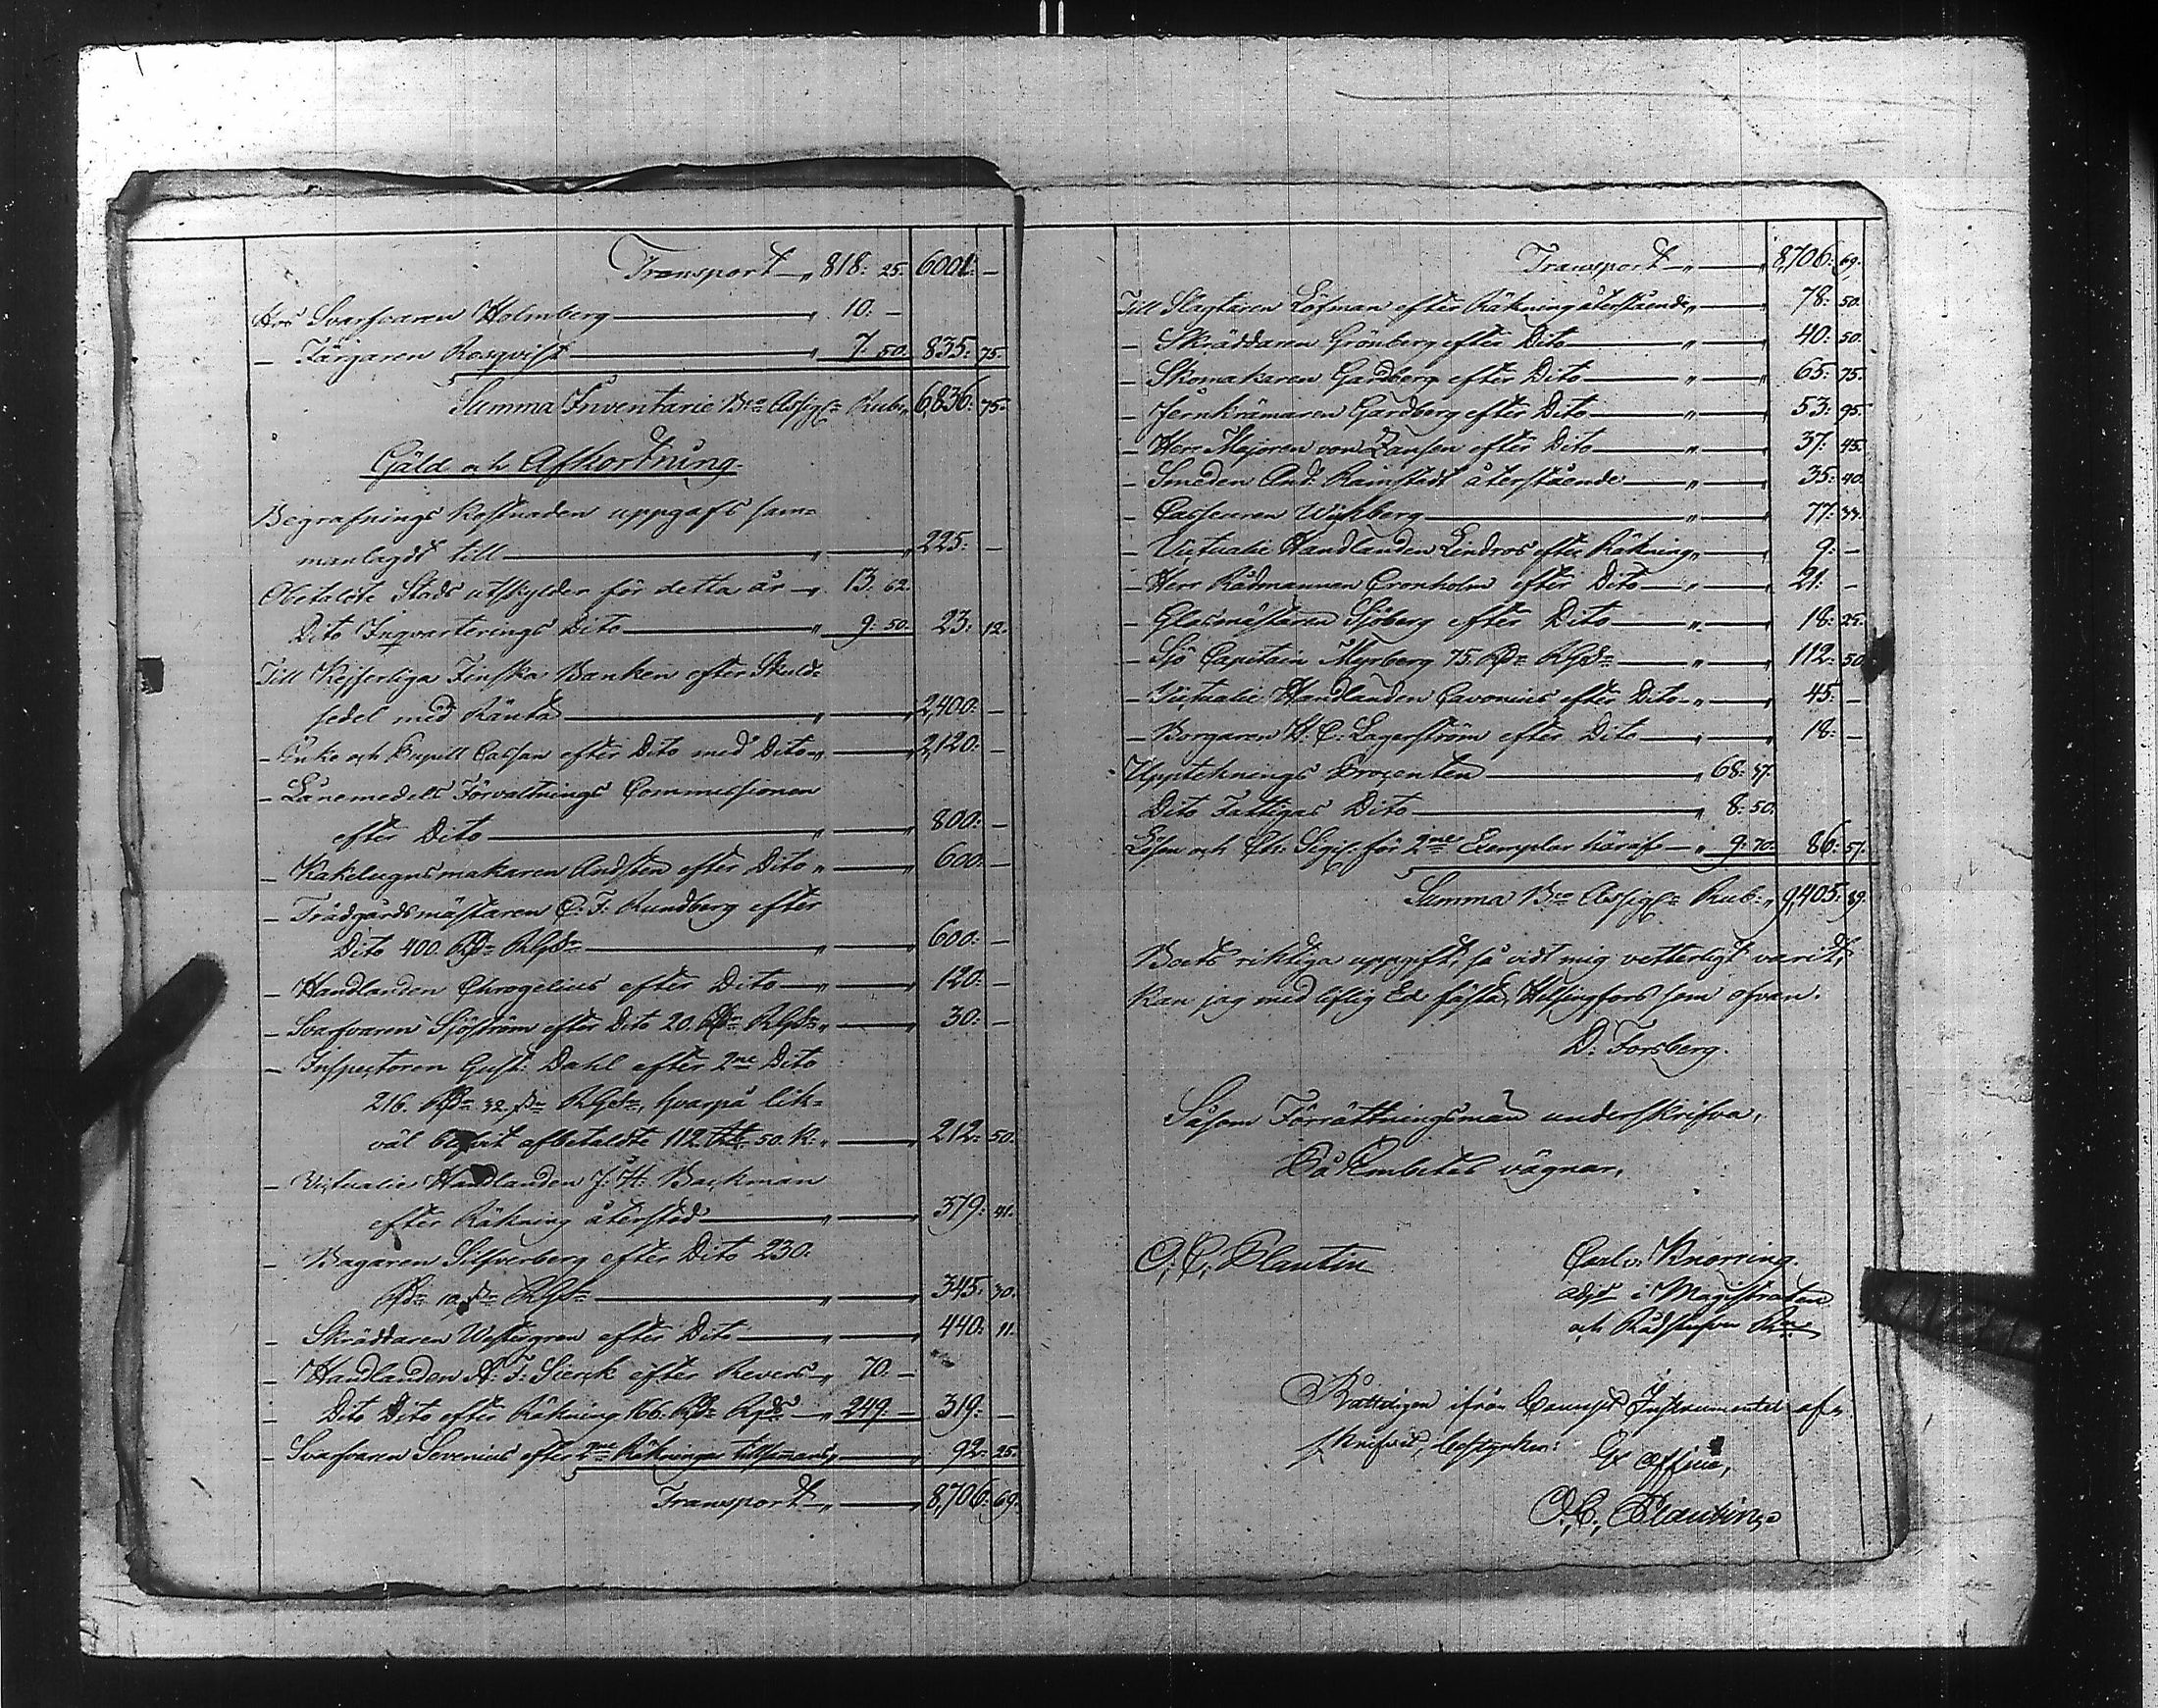 Transport " 818: 25. 6001: —
Hos Svarfvaren Holmberg " 10: —
— Färgaren Rosqvist " 7. 50. 835: 75.
Summa Inventarie Bco Assigr Rub: 6,836: 75.
Gäld och Afkortning.
Begrafnings kostnaden uppgafs sam=
manlagdt till " 225: —
Obetaldte Stads utskylder för detta år " 13: 62.
Dito Inqvarterings Dito " 9: 50. 23: 12.
Till Kejserliga Finska Banken efter Skuld=
sedel med Ränta " 2,400: —
— Enke och Pupill Cassan efter Dito med Dito " 2,120: —
— Lånemedels Förvaltnings Commissionen
efter Dito " 800: —
— Kakelugnsmakaren Andsten efter Dito " 600: —
— Trädgårdsmästaren C: F: Rundberg efter
Dito 400. Rdr RGds " 600: —
— Handlanden Chrogelius efter Dito " 120: —
— Svarfvaren Sjöström efter Dito 20. Rdr RGds " 30: —
— Inspectoren Gust: Dahl efter 2ne Dito
216. Rdr 32 sk RGds, hvarpå lik=
väl blifvit afbetaldte 112. 50. K: " 212: 50.
— Victualie Handlanden J: H: Backman
efter Räkning återstod " 379: 41.
— Bagaren Silfverberg efter Dito 230.
Rdr 10 sk RGds " 345: 30.
— Skräddaren Westergren efter Dito " 440: 11.
— Handlanden A: F: Sierck efter Revers " 70: —
— Dito Dito efter Räkning 166. Rdr Rgds " 249: — 319: —
— Svarfvaren Sevenius efter 2ne Räkningar tillsamans " 92: 25.
Transport " 8,706: 69.
Transport " 8,706: 69.
Till Slagtaren Löfman efter Räkning återstående " 78: 50.
— Skräddaren Grönberg efter Dito " 40: 50.
— Skomakaren Gardberg efter Dito " 65: 75.
— Jernkrämaren Gardberg efter Dito " 53: 95.
— Herr Majoren von Zansen efter Dito " 37: 45.
— Smeden And: Ramstedt återstående " 35: 40.
— Casseuren Wikberg " 77: 33.
— Victualie Handlanden Lindros efter Räkning " 9: —
— Herr Rådmannen Cronholm efter Dito " 21: —
— Glasmästaren Sjöberg efter Dito " 18: 25.
— Sjö Capitain Myrberg 75. Rdr RGds " 112: 50.
— Victualie Handlanden Cavonius efter Dito " 45: —
— Borgaren H: C: Lagerström efter Dito " 18: —
Upptecknings Procenten " 68: 37.
Dito Fattigas Dito " 8: 50.
Lösen och Ch: Sigil: för 2ne Exemplar häraf " 9: 70. 86: 57.
Summa Bco Assigr Rub: 9,405: 89.
Boets riktiga uppgift, så vidt mig vetterligt varit,
kan jag med liflig Ed fästa, Helsingfors som ofvan.
D: Forsberg.
Såsom Förrättningsman underskrifva,
På Embetes vägnar,
O: C: Plantin
Carl v: Knorring.
adjt i Magistraten
och Rådstufvu Rn
Rätteligen ifrån Concept Instrumentet af=
skrifvit, bestyrker:
Ex officio,
O: C: Plantin